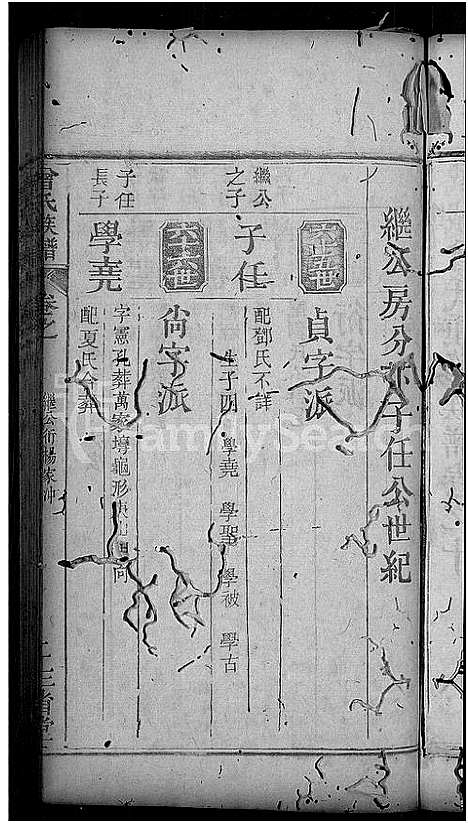 繼公房分 子任公世紀
六十五世
貞字派
繼公
之子
子任
配鄧氏不詳
生子四 學堯 學聖 學被 學古
六十六世
尙字派
子任
長子
學堯
字憲 葬萬家塆龜形 向
配夏氏合葬
曾氏族譜
卷之
繼公衍楊家沖
三省堂
FamilySearch